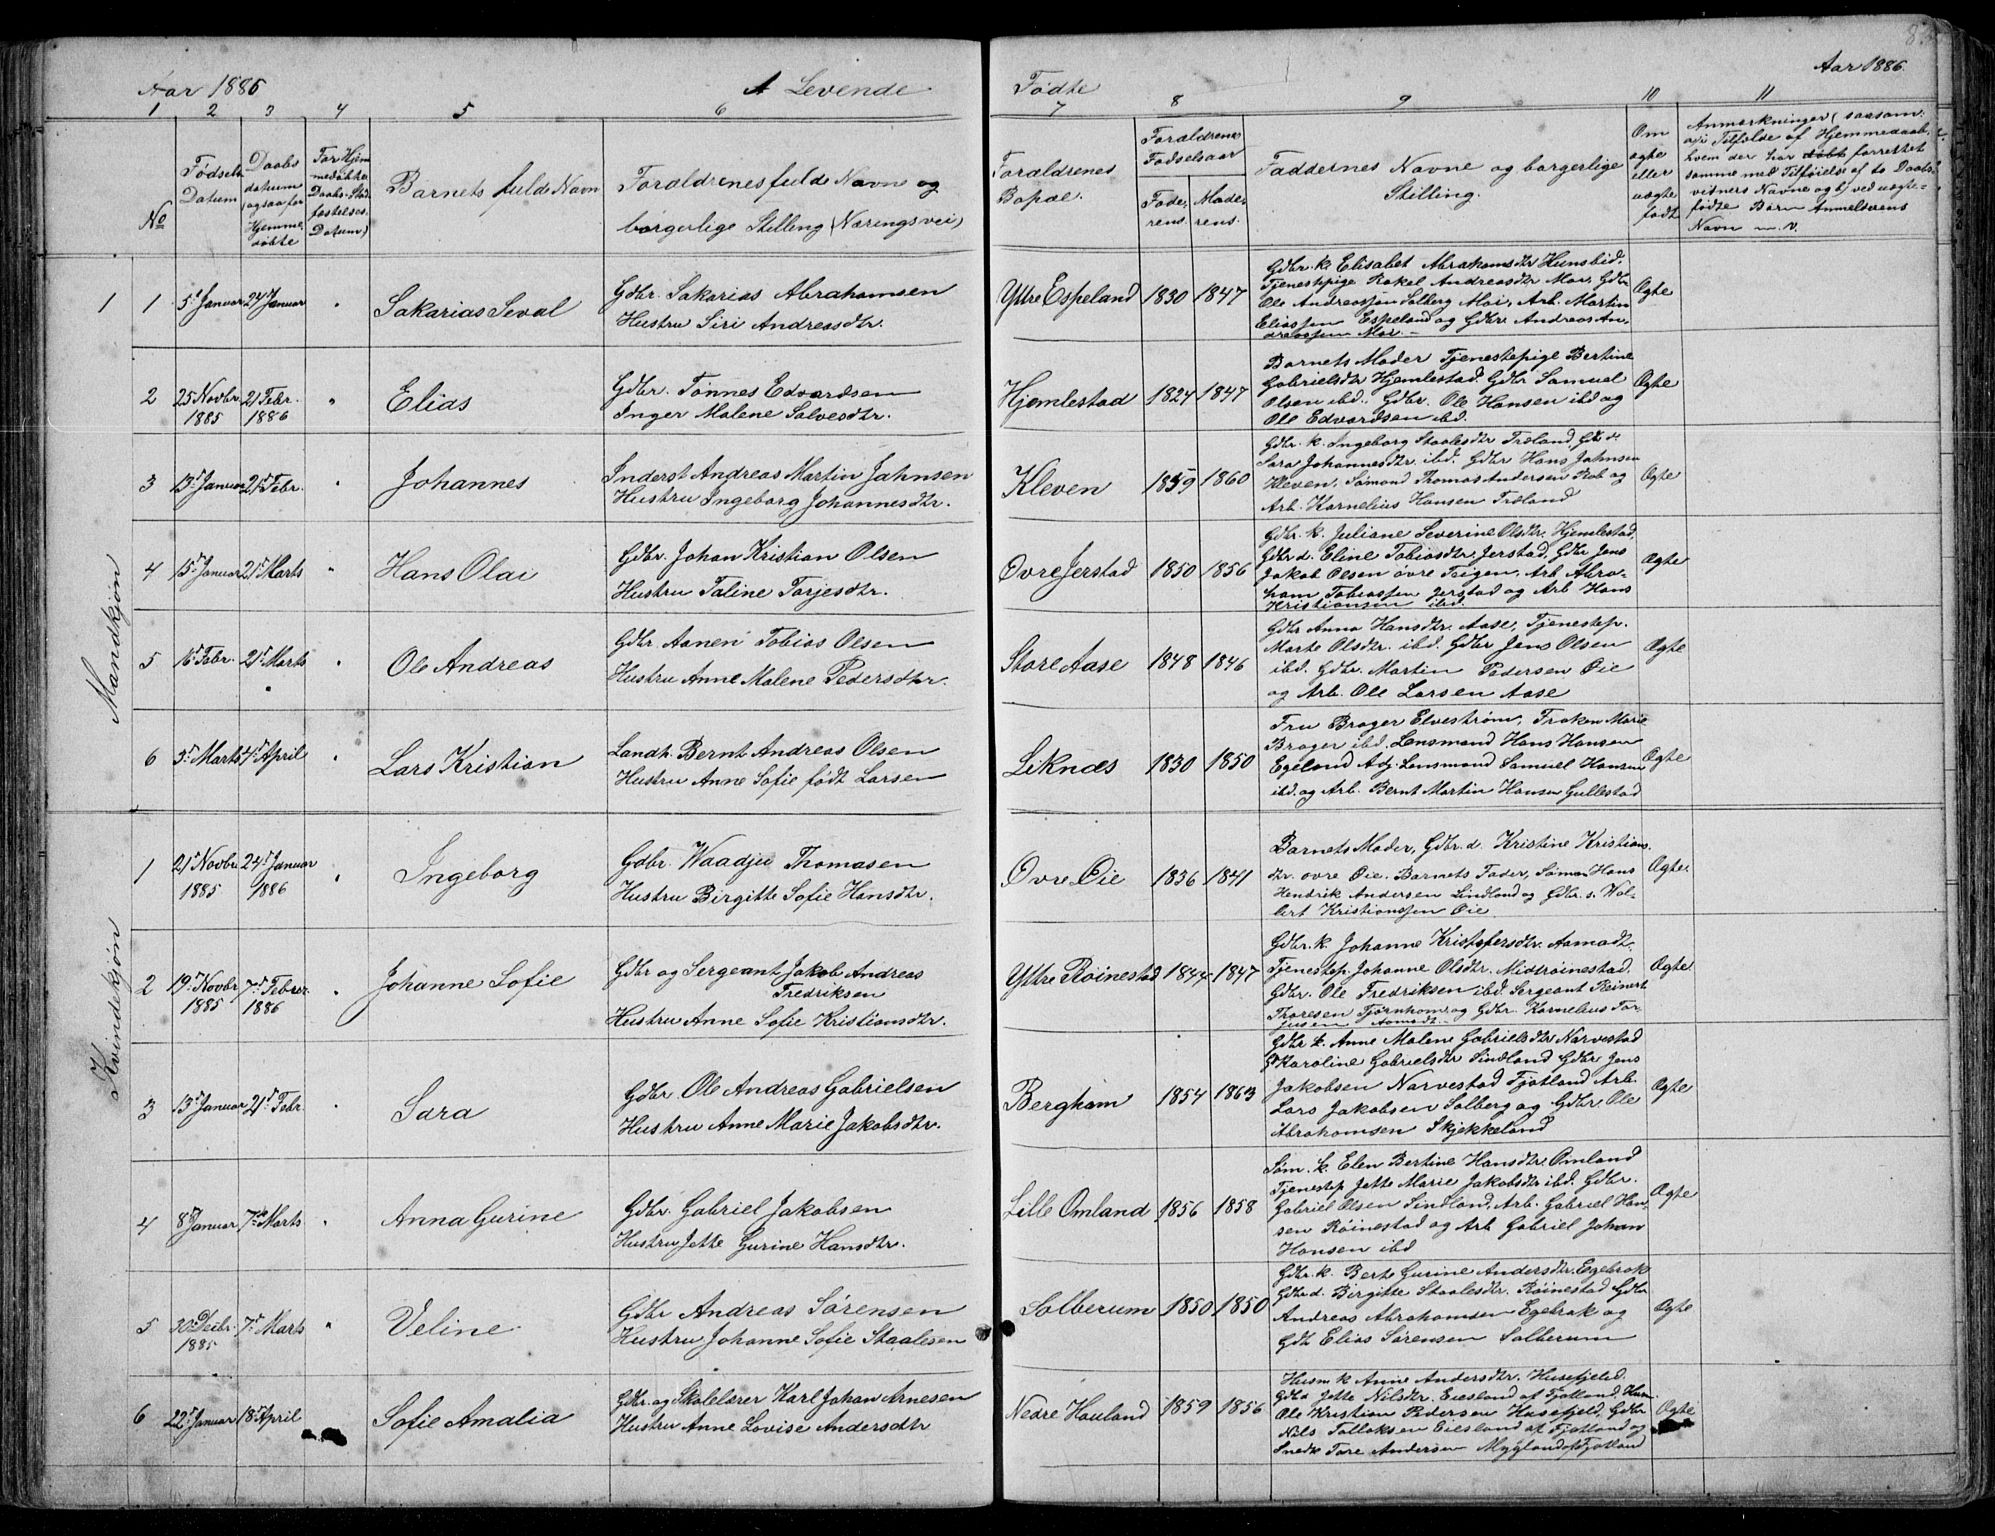 Aar 1886
A Levende
Fødte
Aar 1886.
1 2 3 4 5 6 7 8 9 10 11
No
Fødsels
Datum
Daabs
datum
(ogsaa for
Hjemme
døbte
For Hjem
medøbte
Daabs Stad
fæstelses
Datum)
Barnets fulde Navn
Forældrenes fulde Navn og
borgerlige Stilling (Næringsvei)
Forældrenes
Bopæl.
Forældrenes
Fødselsaar
Fade,
rens
Mode,
rens
Faddernes Navne og borgerlige
Stilling.
Om
ægte
eller
uægte
født
Anmærkninger (saasom
a) i Tilfælde af Hjemmedaab,
hvem der har døbt forrettet
samme med Tilføielse af to Daabs
vidners Navne og b) ved uægte
fødte Børn Anmelderens
Navn m. v.
Mandkjøn
1
1 5t Januar 24 Januar " Sakarias Seval
Gdbr. Sakarias Abrahamsen
Hustru Siri Andreasdtr.
Yttre Espeland 1830 1847
Gdbr. k. Elisabet Abrahamsdtr Hunsbid.
Tjenestepige Rakel Andreasdtr Moi, Gdbr
Ole Andreassen Solberg Moi, Arb. Martin
Eliassen Espeland og Gdbr. Andreas An,
dreassen Moi. –
Ægte
2 25 Novbr. 1885 21 Febr. 1886 " Elias
Gdbr. Tønnes Edvardsen
Inger Malene Salvesdtr.
Hjemlestad 1824 1847
Barnets Moder Tjenestepige Bertine
Gabrielsdtr Hjemlestad. Gdbr Samuel
Olsen ibd. Gdbr. Ole Hansen ibd og
Ole Edvardsen ibd.
Ægte
3 13t Januar 21t Febr. " Johannes
Inderst Andreas Martin Jahnsen
Hustru Ingeborg Johannesdtr.
Kleven 1859 1860
Gdbr. k. Ingeborg Staalesdtr Træland, Gdbr d.
Sara Johannesdtr. ibd. Gdbr Hans Jahnsen
Kleven. Sømand Thomas Andersen Rob og
Arb. Kornelius Hansen Træland
Ægte
4 15t Januar 21t Marts " Hans Olai
Gdbr. Johan Kristian Olsen
Hustru Taline Torjesdtr.
Øvre Jerstad 1850 1856
Gdbr. k. Juliane Severine Olsdtr. Hjemlestad,
Gdbr d. Eline Tobiasdtr. Jerstad, Gdbr Jens
Jakob Olsen øvre Teigen. Arb Abra-
ham Tobiassen Jerstad og Arb Hans
Kristiansen ibd.
Ægte
5 16t Febr. 21t Marts " Ole Andreas
Gdbr. Aanen Tobias Olsen
Hustru Anne Malene Pedersdtr.
Store Aase 1848 1846
Gdbr Anna Hansdtr. Aase, Tjenestep.
Marte Olsdtr. ibd. Gdbr Jens Olsen
ibd. Gdbr. Martin Pedersen Øie
og Arb. Ole Larsen Aase
Ægte
6 3t Marts 4t April " Lars Kristian
Landh. Bernt Andreas Olsen
Hustru Anne Sofie født Larsen
Liknæs 1830 1850
Fru Brager Elvestrøm, Frøken Marie
Brager ibd. Lensmand Hans Hansen
Egeland Adj. Lensmand Samuel Hansen
ibd. og Arb. Bernt Martin Hansen Gullestad
Ægte
Kvindekjøn
1 21t Novbr 1885 24t Januar 1886 " Ingeborg
Gdbr. Waadjei Thomasen
Hustru Birgitte Sofie Hansdtr.
Øvre Øie 1836 1841
Barnets Moder, Gdbr. d. Kristine Kristians,
dtr. øvre Øie. Barnets Fader, Sømn Hans
Hendrik Andersen Lindland og Gdbr. s. Wol-
lert Kristianssen Øie
Ægte.
2 19t Novbr 1885 7d Februar 1886 " Johanne Sofie
Gdbr og Sergeant Jakob Andreas
Fredriksen
Hustru Anne Sofie Kristiansdtr.
Yttre Røinestad 1844 1847
Gdbr. k. Johanne Kristofersdtr. Aamodt,
Tjenestep. Johanne Olsdtr. Midtrøinestad.
Gdbr. Ole Fredriksen ibd. Sergeant Reinert
Thoresen Tjørnhom og Gdbr. Kornelius Tor-
jusen Aamodt.
Ægte
3 13t Januar 21t Febr. " Sara
Gdbr Ole Andreas Gabrielsen
Hustru Anne Marie Jakobsdtr.
Berghom 1854 1863
Gdbr k. Anne Malene Gabrielsdtr. Narvestad
Karoline Gabrielsdtr Sindland Gdbr Jens
Jakobsen Narvestad Fjotland Arb.
Lars Jakobsen Solberg og Gdbr. Ole
Abrahamsen Skjekkeland
Ægte
4 8t Januar 7de Marts " Anna Gurine
Gdbr. Gabriel Jakobsen
Hustru Jette Gurine Hansdtr.
Lille Omland 1856 1858
Søm. k. Elen Bertine Hansdtr. Omland
Tjenestep Jette Marie Jakobsdtr ibd. Gdbr.
Gabriel Olsen Sindland, Arb. Gabriel Han,
sen Røinestad og Arb Gabriel Johan
Hansen ibd
Ægte
5 30 Decbr. 1885 7d Marts " Veline
Gdbr Andreas Sørensen
Hustru Johanne Sofie Staalesen
Solberum 1850 1850
Gdbr. k. Berte Gurine Andersdtr. Egebrok
Gdbr d. Birgitte Staalesdtr. Røinestad Gdbr
Andreas Abrahamsen Egebrok og
Gdb Elias Sørensen Solberum
Ægte
6 22t Januar 18t April Sofie Amalia
Gdbr. og Skolelærer Karl Johan Arnesen
Hustru Anne Lovise Andersdtr
Nedre Houland 1859 1856
Husm k Anne Andersdtr. Husefjeld.
Gdbr d Jette Nilsdtr. Eiesland af Fjotland, Husm.
Ole Kristian Pedersen Husefjeld, Gdbr
Nils Tollaksen Eiesland af Fjotland og
Snedk Tore Andersen Mygland af Fjotland
Ægte